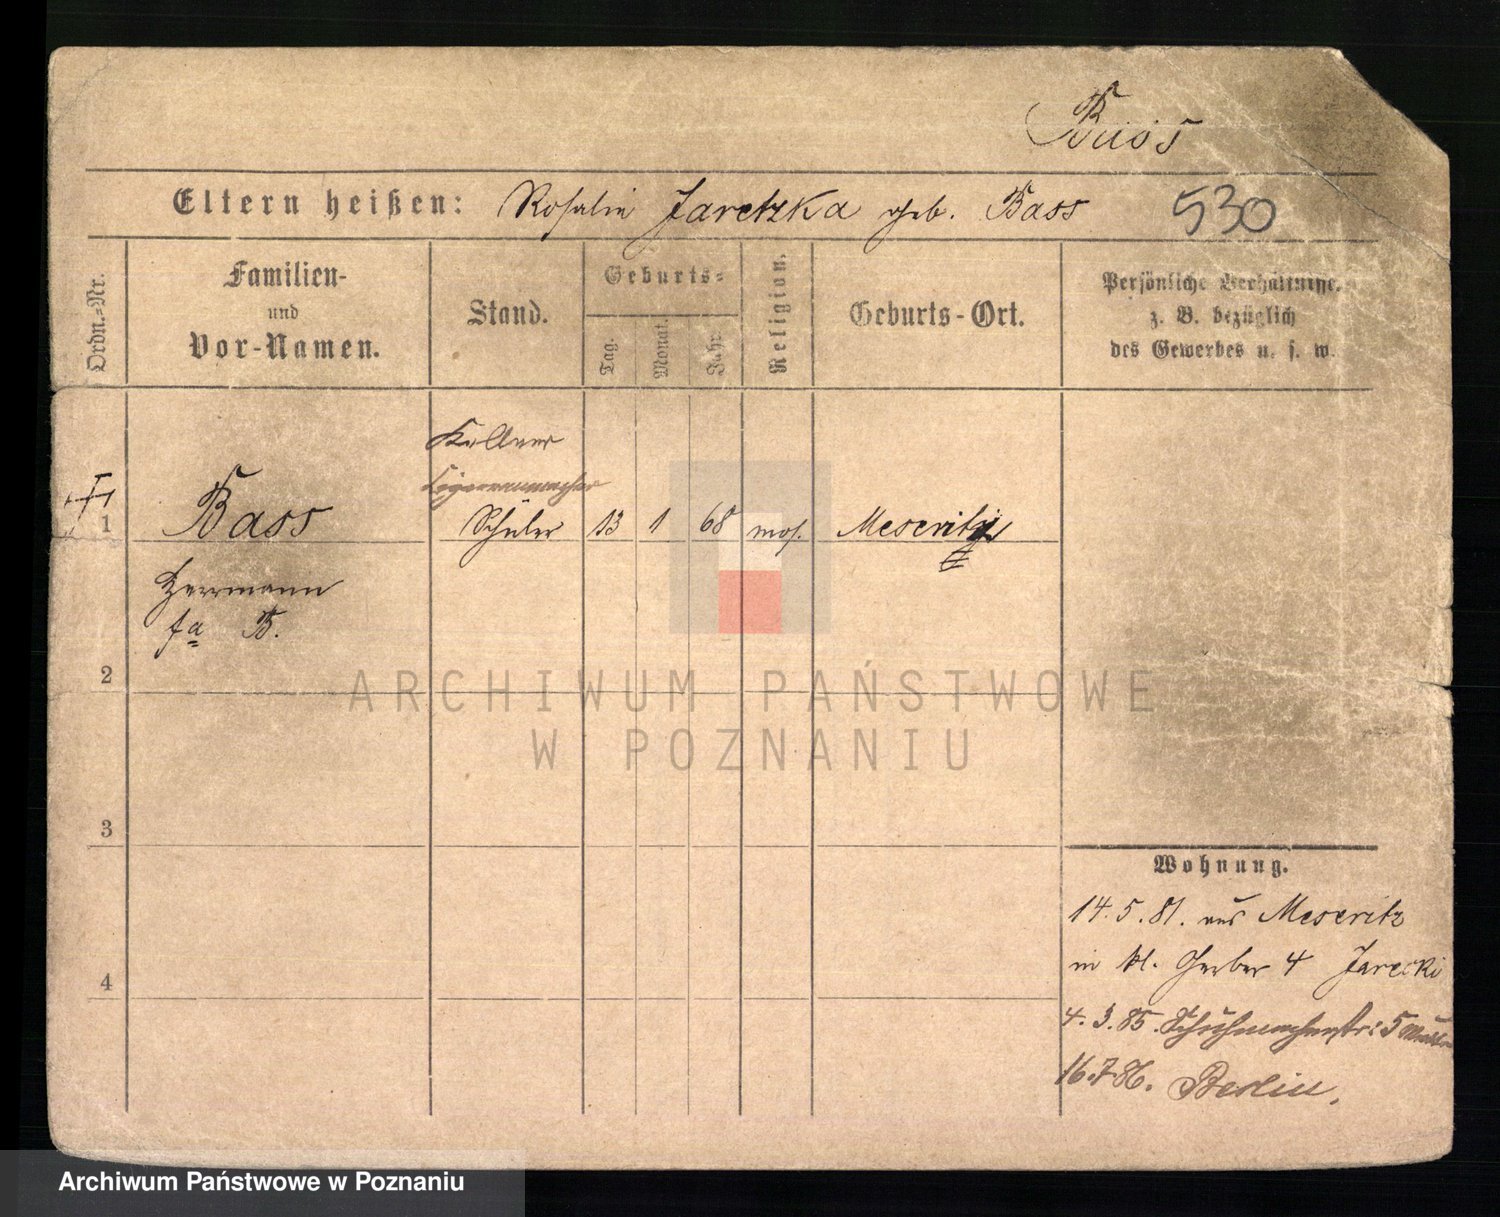 530
Eltern heißen: Rosalie Jaretzka geb. Bass
Ordn.-Nr.
Familien-
und
Vor-Namen.
Stand.
Geburts-
Tag.
Monat.
Jahr.
Religion.
Geburts-Ort.
Persönliche Verhältnisse.
z. B. bezüglich
des Gewerbes u. s. w.
Kellner
1 Bass Schüler 13 1 68 mos. Meseritz
Herrmann
fa B.
2
3
4
Wohnung.
14.5.81. aus Meseritz
in kl. Gerber 4 Jarecki
4.3.85. Schuhmacherstr: 5
16.7.86. Berlin.
ARCHIWUM PAŃSTWOWE
W POZNANIU
Archiwum Państwowe w Poznaniu